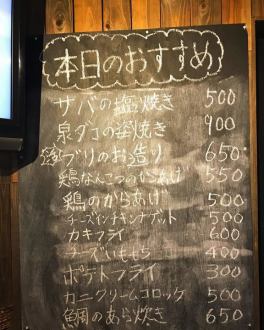 本日のおすすめ
サバの塩焼き 500
泉ダコの唐焼き 900
ブリのお造り 650
鶏なんこつのからあげ 550
鶏のからあげ 500
チーズインチキンナゲット 500
カキフライ 600
チーズいももち 400
ポテトフライ 300
カニクリームコロッケ 500
鯛のあら炊き 650